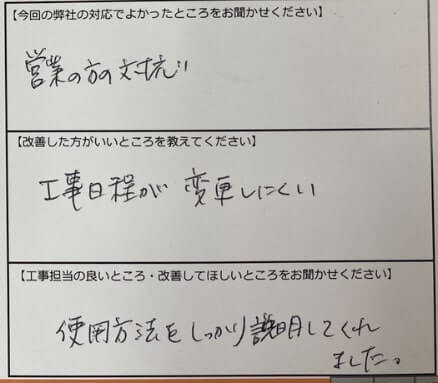 【今回の弊社の対応でよかったところをお聞かせください】
営業の方の対応
【改善した方がいいところを教えてください】
工事日程が変更しにくい
【工事担当の良いところ・改善してほしいところをお聞かせください】
使用方法をしっかり説明してくれ
ました。